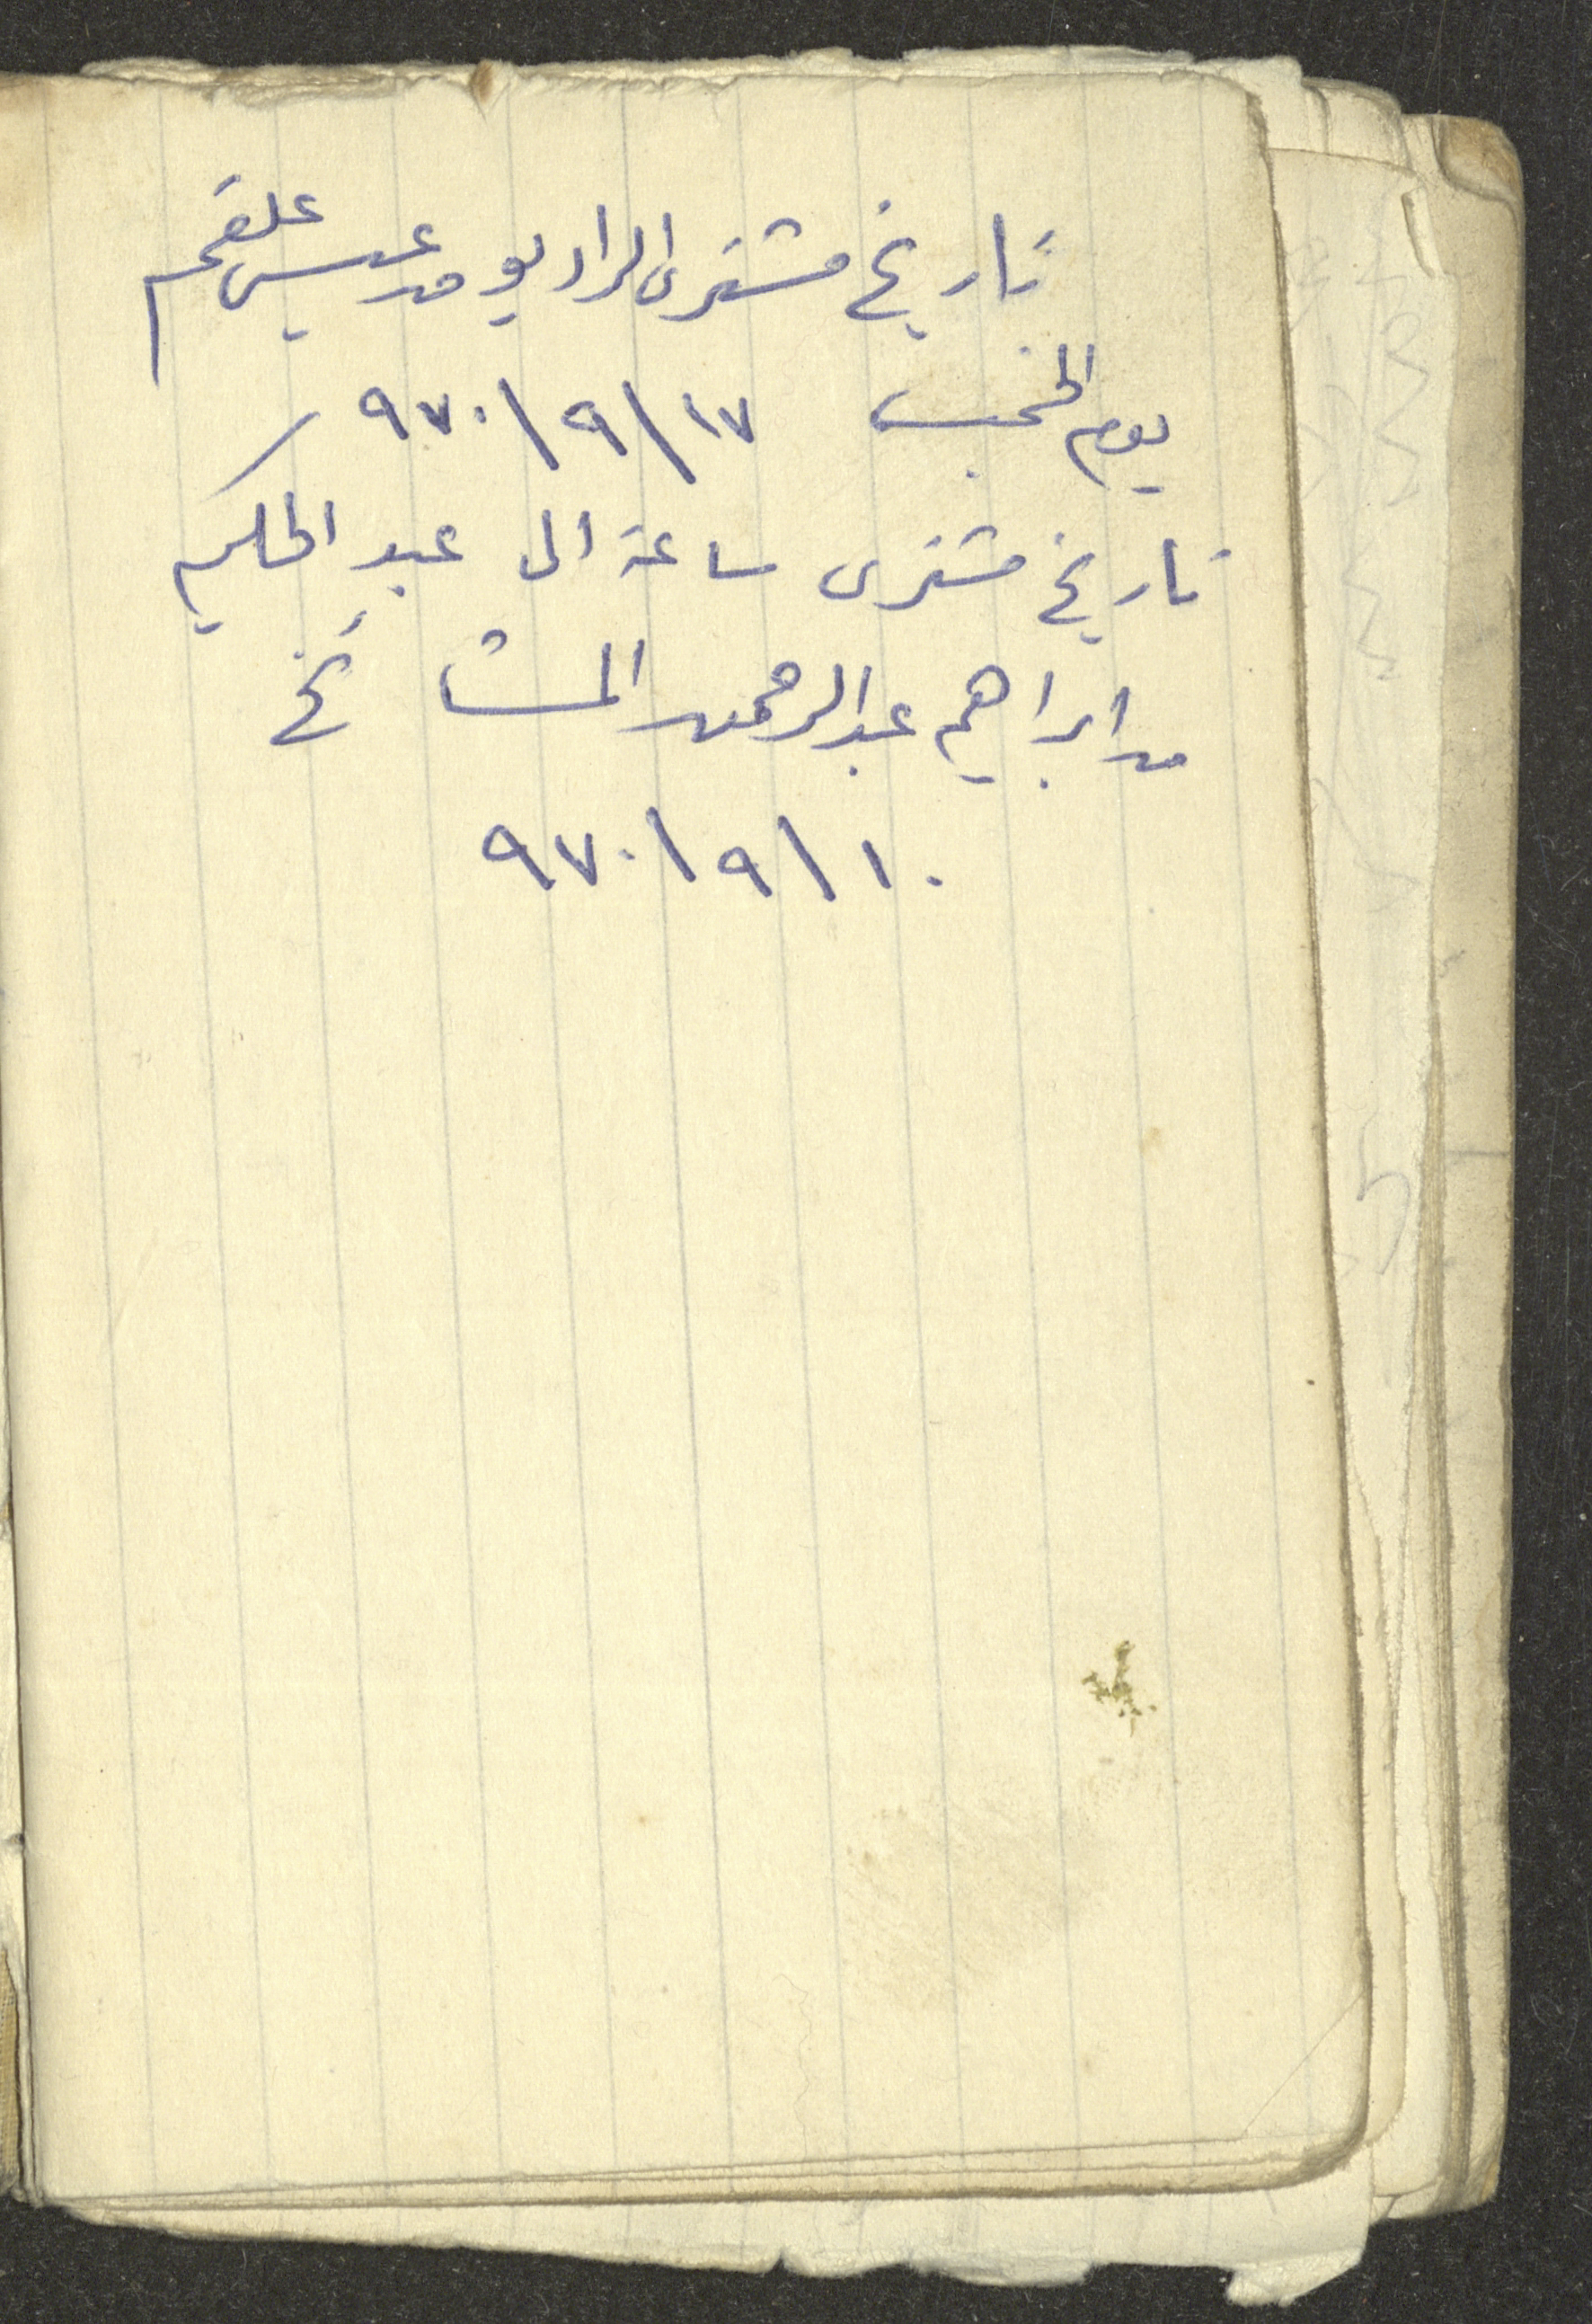 تاريخ مشترى الراديو من عيسى علقم
يوم الخميس ١٧\٩\٩٧٠
تاريخ مشترى ساعة الى عبد الحكيم
من ابراهيم عبد الرحمن المشائخ
١٠\٩\٩٧٠